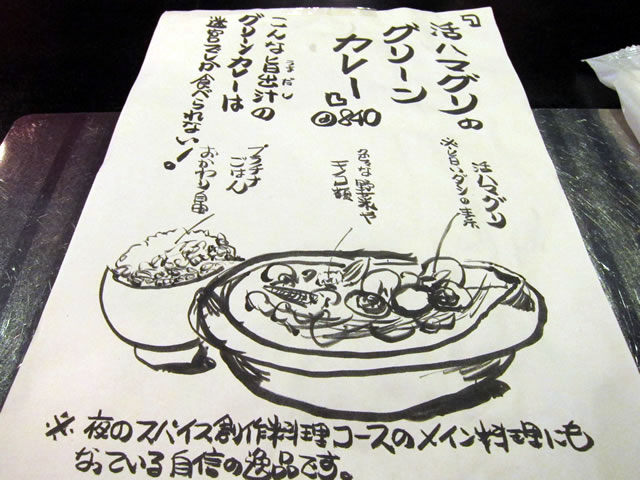 『活ハマグリの
グリーン
カレー』
@840
こんな旨出汁の
うまだし
グリーンカレーは
迷宮でしか食べられない!。
活ハマグリ
野菜や
プラチナ
ごはん
おかわり自由
※夜のスパイス創作料理コースのメイン料理にも
なっている自信の逸品です。